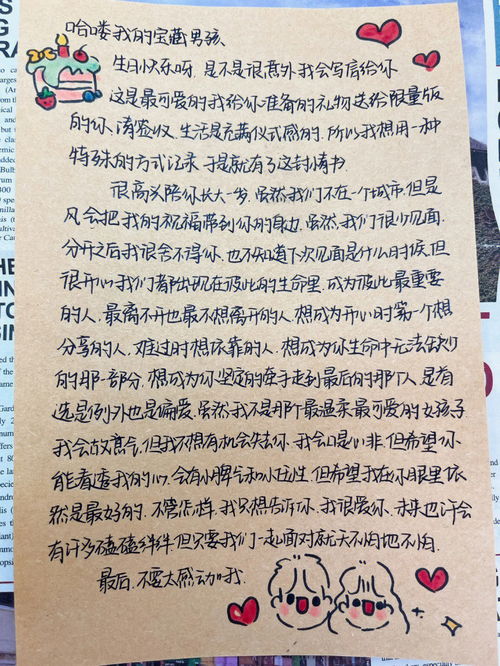 哈喽我的宝藏男孩、
生日快乐呀,是不是很意外我会写信给你
这是最可爱的我给你准备的礼物送给限量版
的你,请签收,生活是充满仪式感的,所以我想用一种
特殊的方式记录,于是就有了这封情书
很高兴陪你长大一岁,虽然我们不在一个城市,但是
风会把我的祝福带到你的身边,虽然,我们很少见面,
分开之后我很舍不得你,也不知道下次见面是什么时候,但
很开心我们都出现在彼此的生命里,成为彼此最重要
的人,最离不开也最不想离开的人,想成为开心时第一个想
分享的人,难过时想依靠的人,想成为你生命中无法缺少
的那一部分,想成为你坚定的牵手走到最后的那个人,是首
选是例外也是偏爱,虽然我不是那个最温柔最可爱的女孩子
我会 气,但我不想有机会失去你,我会口是心非,但希望你
能看透我的心,会有小脾气和小任性,但希望我在你眼里依
然是最好的,不管怎样,我只想告诉你,我很爱你,未来也许会
有许多磕磕绊绊但只要我们一起面对就天不怕地不怕.
最后,不要太感动哦.